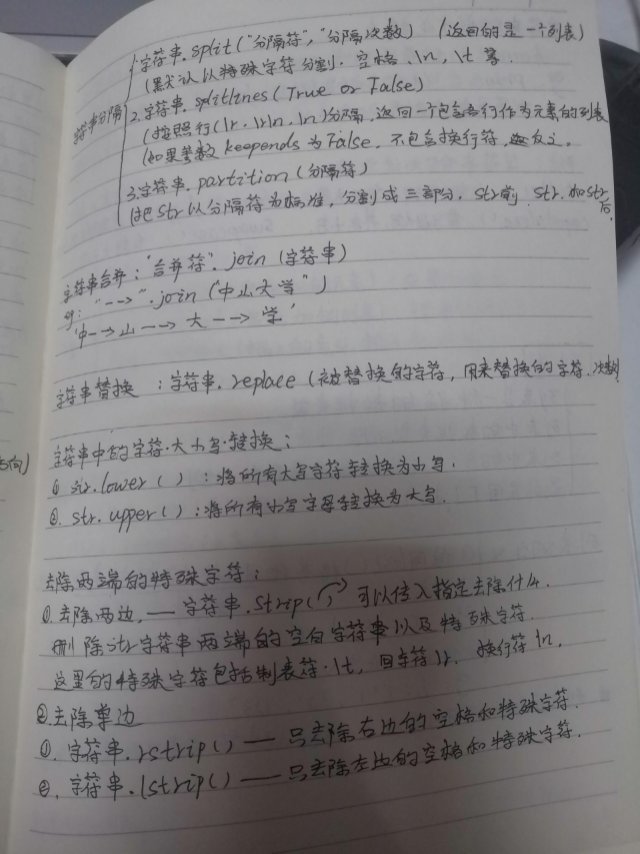 字符串.split("分隔符","分隔次数") (返回的是一个列表)
(默认以特殊字符分割. 空格、\n, \t 等.
字符串分隔 2.字符串.splitlines(True or False)
(按照行(\r, \r\n, \n)分隔, 返回一个包含各行作为元素的列表
(如果参数 keepends 为 False, 不包含换行符, 反之.
3.字符串.partition(分隔符)
(把str以分隔符为标准, 分割成三部分, str前, str, 和str后.
字符串合并: "合并符".join(字符串)
eg: "-->".join("中山大学")
'中-->山-->大-->学'
字符串替换 : 字符串.replace(被替换的字符, 用来替换的字符, 次数)
方向)
字符串中的字符.大小写.转换:
① str.lower() : 将所有大写字符转换为小写.
②. str.upper() : 将所有小写字母转换为大写.
去除两端的特殊字符:
①.去除两边.— 字符串.strip() 可以传入指定去除什么.
删除str字符串两端的空白字符串以及特殊字符.
这里的特殊字符包括制表符.\t, 回车符\r. 换行符\n,
②去除单边
①. 字符串.rstrip() — 只去除右边的空格和特殊字符.
②. 字符串.lstrip() — 只去除左边的空格和特殊字符.